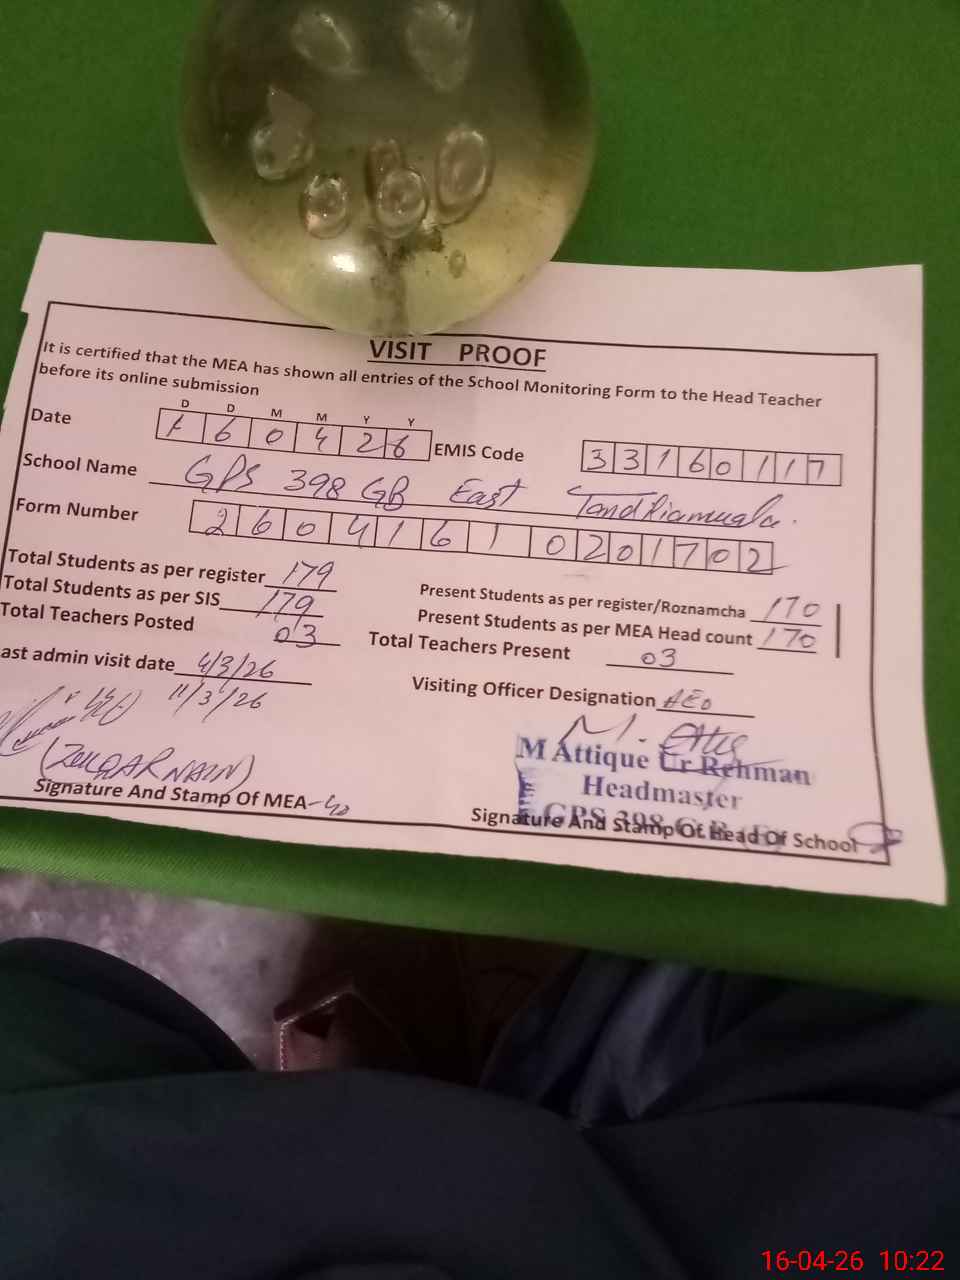 VISIT PROOF
It is certified that the MEA has shown all entries of the School Monitoring Form to the Head Teacher
before its online submission
D D M M Y Y
Date 1 6 0 4 2 6 EMIS Code 3 3 1 6 0 1 1 7
School Name GPS 398 GB East
Form Number 2 6 0 4 1 6 1 0 2 0 1 7 0 2
Total Students as per register 179 Present Students as per register/Roznamcha 170
Total Students as per SIS 179 Present Students as per MEA Head count 170
Total Teachers Posted 03 Total Teachers Present 03
ast admin visit date 4/3/26 Visiting Officer Designation AEO
11/3/26
(ZULQAR NAIN)
M Attique Ur Rehman
Headmaster
GPS 398 G.B (E)
Signature And Stamp Of MEA Signature And Stamp Of Head Of School
16-04-26 10:22